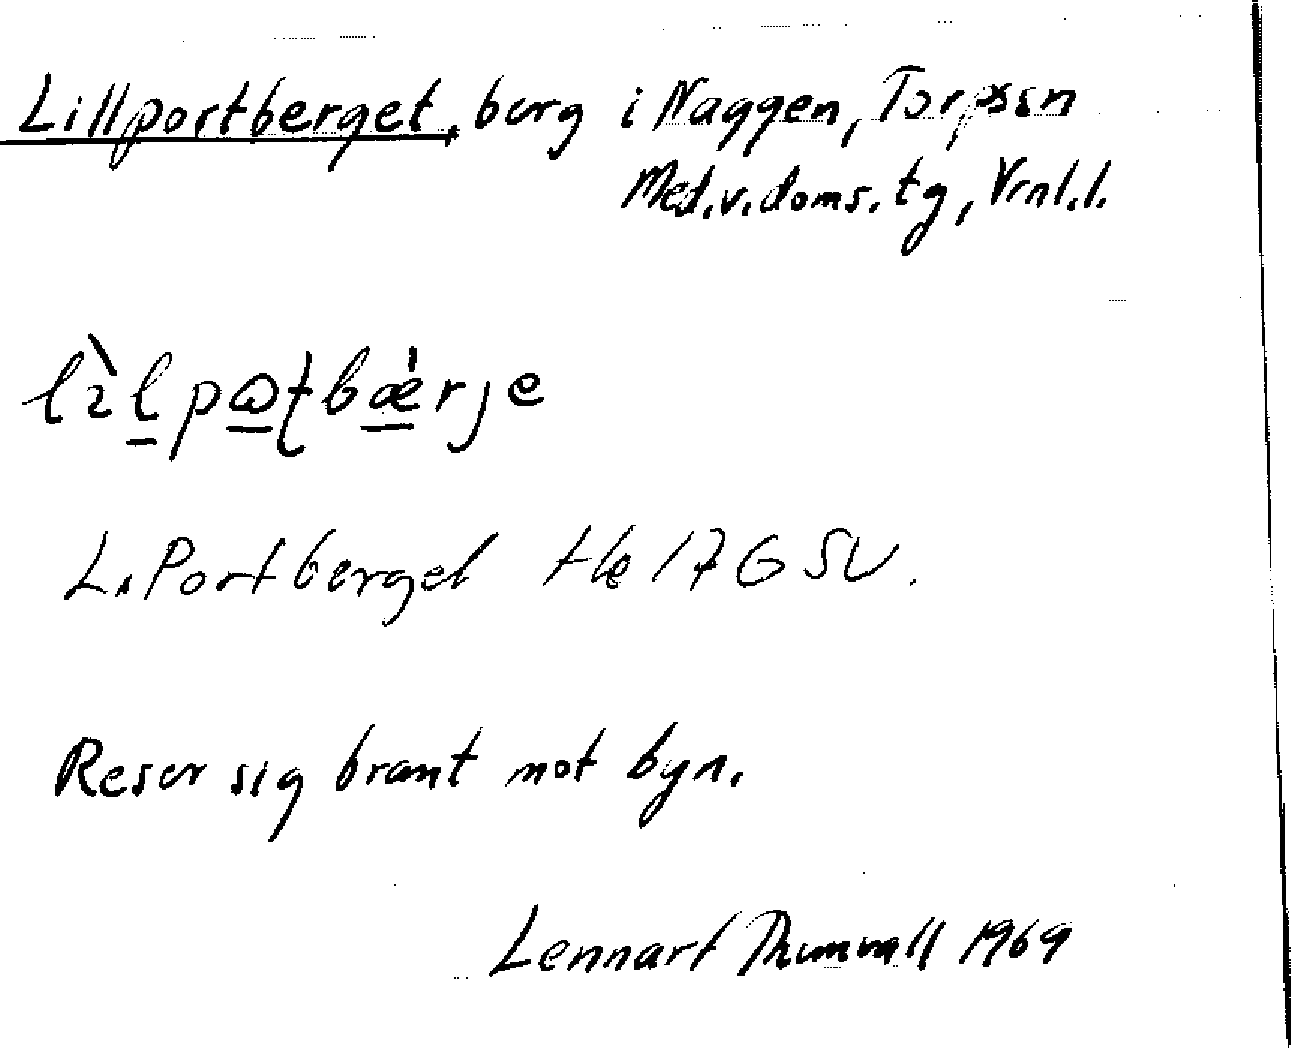 Lillportberget, berg i Naggen, Torpsn
Med.v.doms.tg, Vrnl.l.
L. Portberget tle 17G SV.
Reser sig brant mot byn.
Lennart Thumwall 1969